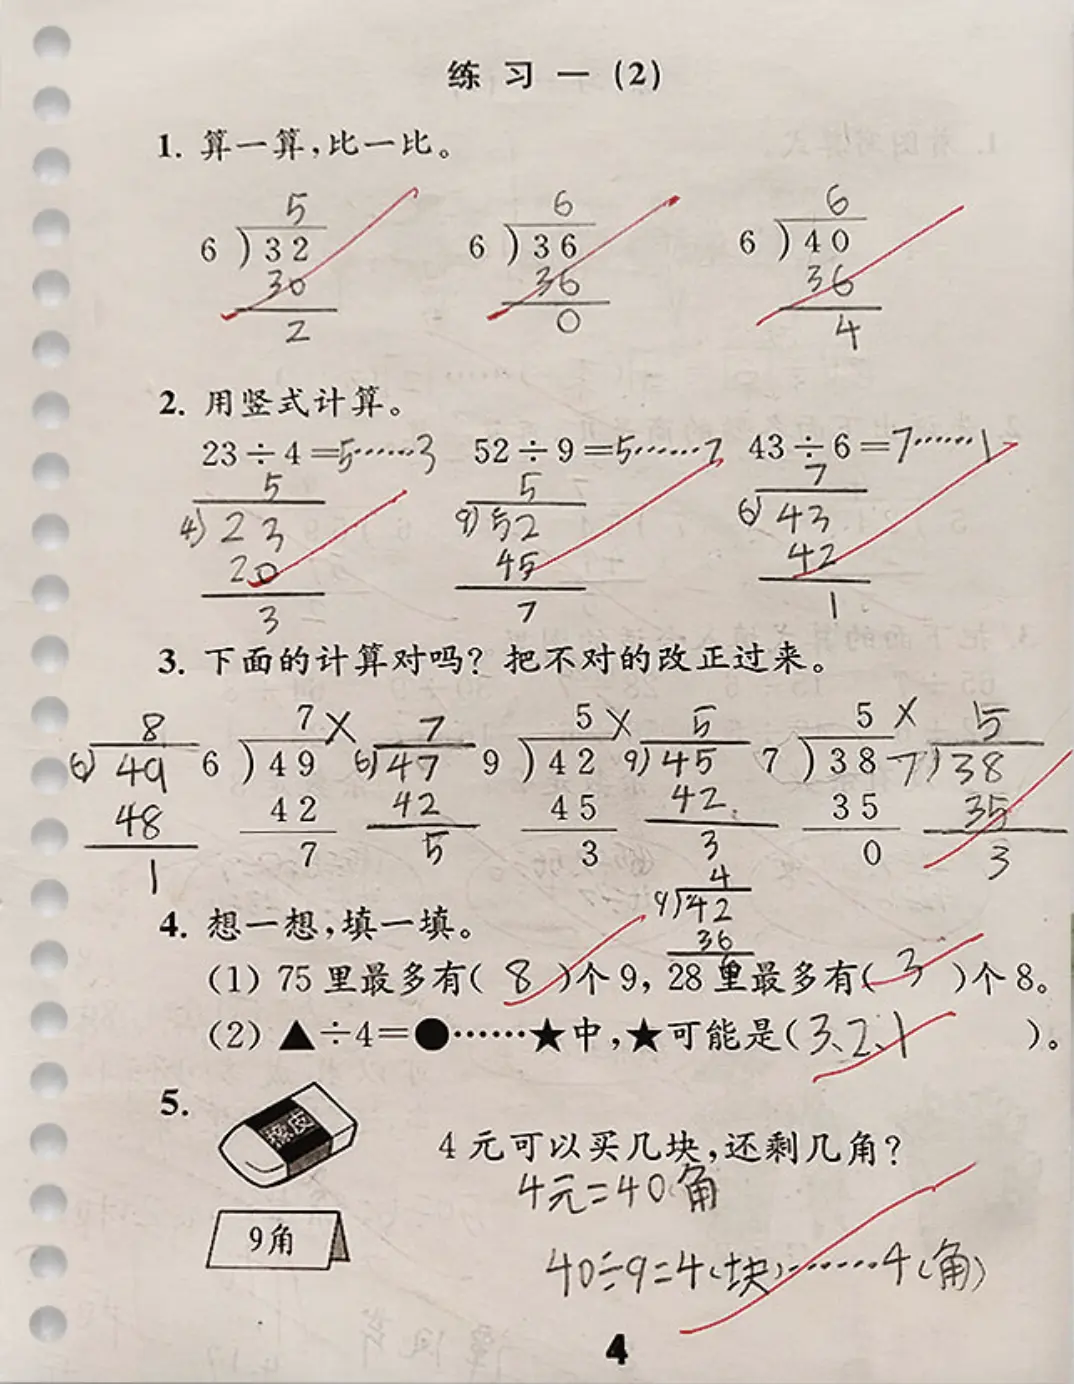 练习一(2)
1. 算一算,比一比。
5 6 6
6)32 6)36 6)40
30 36 36
2 0 4
2. 用竖式计算。
23÷4=5……3 52÷9=5……7 43÷6=7……1
5 5 7
4)23 9)52 6)43
20 45 42
3 7 1
3. 下面的计算对吗?把不对的改正过来。
8 7× 7 5× 5 5× 5
6)49 6)49 6)47 9)42 9)45 7)38 7)38
48 42 42 45 42 35 35
1 7 5 3 3 0 3
4
9)42
36
4. 想一想,填一填。
(1) 75里最多有(8)个9,28里最多有(3)个8。
(2) ▲÷4=●……★中,★可能是(3、2、1)。
5.
橡皮
4元可以买几块,还剩几角?
4元=40角
9角
40÷9=4(块)……4(角)
4